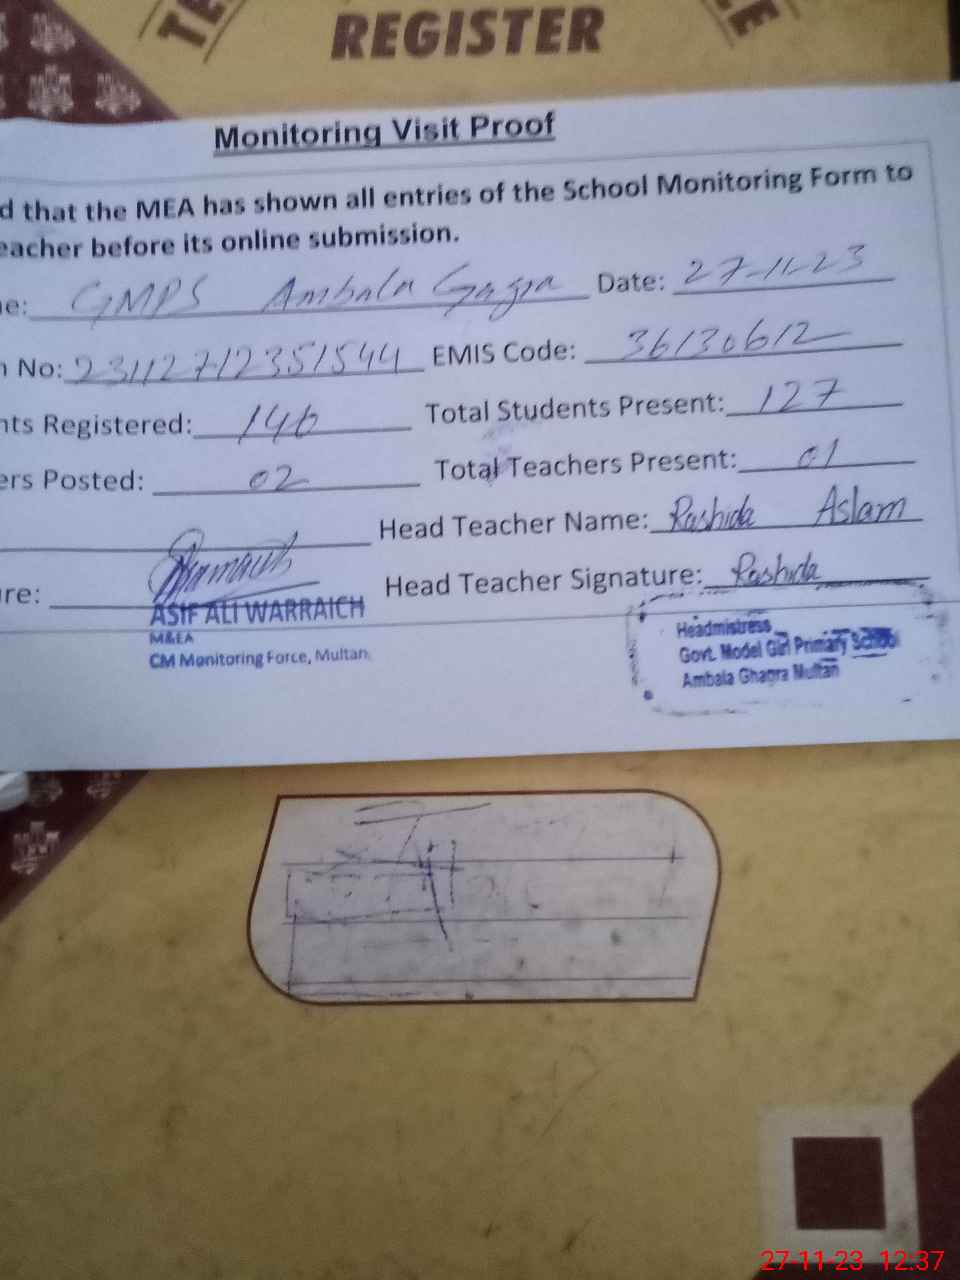 REGISTER
Monitoring Visit Proof
d that the MEA has shown all entries of the School Monitoring Form to
eacher before its online submission.
e: GMPS Ambala Gagra Date: 27-11-23
No: 23112712351544 EMIS Code: 36130612
nts Registered: 146 Total Students Present: 127
ers Posted: 02 Total Teachers Present: 01
Head Teacher Name: Rashida Aslam
re: Head Teacher Signature: Rashida
ASIF ALI WARRAICH
M&EA
CM Monitoring Force, Multan.
Headmistress
Govt. Model Girl Primary School
Ambala Ghagra Multan
27-11-23 12:37